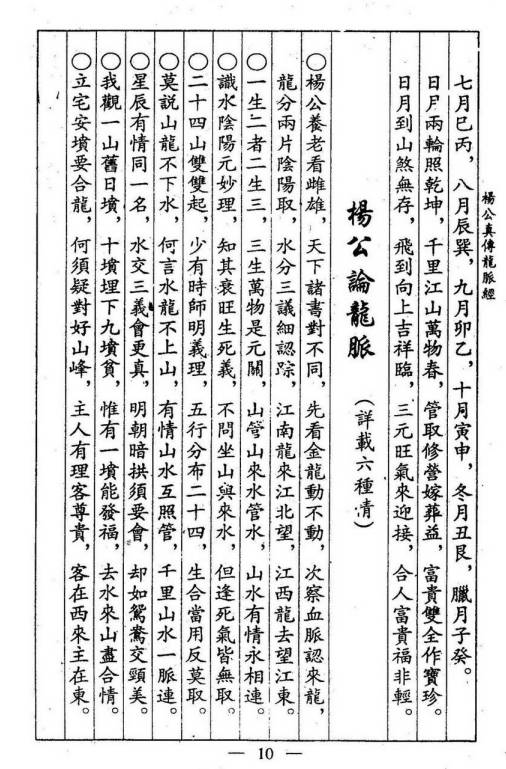 楊公真傳龍脈經
七月巳丙，八月辰巽，九月卯乙，十月寅申，冬月丑艮，臘月子癸。
日月兩輪照乾坤，千里江山萬物春，管取修營嫁葬益，富貴雙全作寶珍。
日月到山煞無存，飛到向上吉祥臨，三元旺氣來迎接，合人富貴福非輕。
楊公論龍脈（詳載六種情）
○楊公養老看雌雄，天下諸書對不同，先看金龍動不動，次察血脈認來龍，
龍分兩片陰陽取，水分三議細認踪，江南龍來江北望，江西龍去望江東。
○一生二者二生三，三生萬物是元關，山管山來水管水，山水有情永相連。
○識水陰陽元妙理，知其衰旺生死義，不問坐山與來水，但逢死氣皆無取。
○二十四山雙雙起，少有時師明義理，五行分布二十四，生合當用反莫取。
○莫説山龍不下水，何言水龍不上山，有情山水互照管，千里山水一脈連。
○星辰有情同一名，水交三義會更真，明朝暗拱須要會，却如鴛鴦交頸美。
○我觀一山舊日墳，十墳埋下九墳貧，惟有一墳能發福，去水來山盡合情。
○立宅安墳要合龍，何須疑對好山峰，主人有理客尊貴，客在西來主在東。
— 10 —